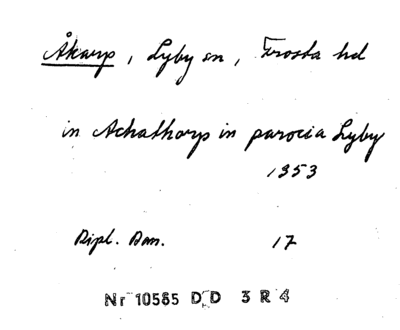 Åkarp, Lyby sn, Frosta hd
in Achathorp in parocia Lyby
1353
Dipl. Dan. 17
Nr 10585 D D 3 R 4